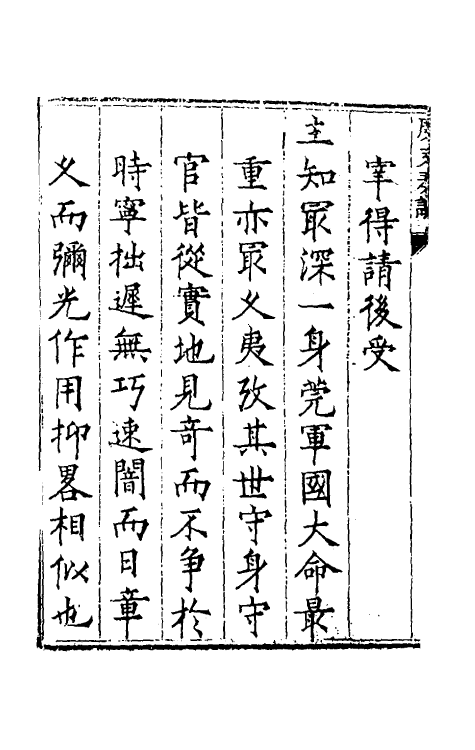 宰得請後受
主知最深一身莞軍國大命最
重亦最乆夷攷其世守身守
官皆從實地見奇而不争於
時寧拙遲無巧速闇而日章
乆而彌光作用抑畧相似也